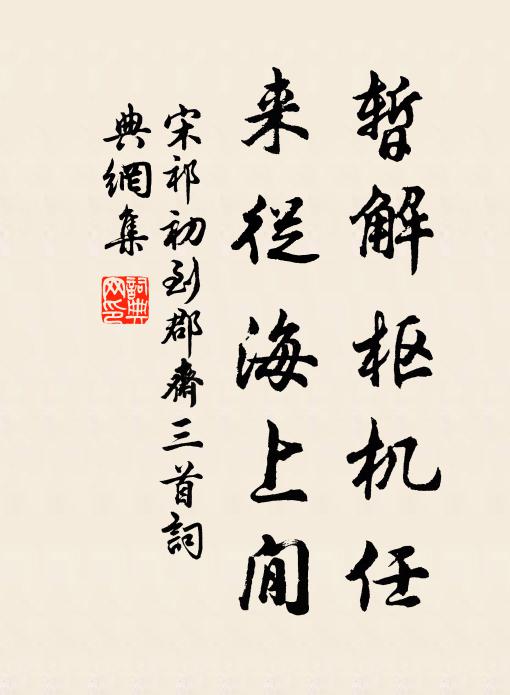 暂解枢机任
来从海上闲
宋祁初到郡斋三首词
典網集
詞典網印